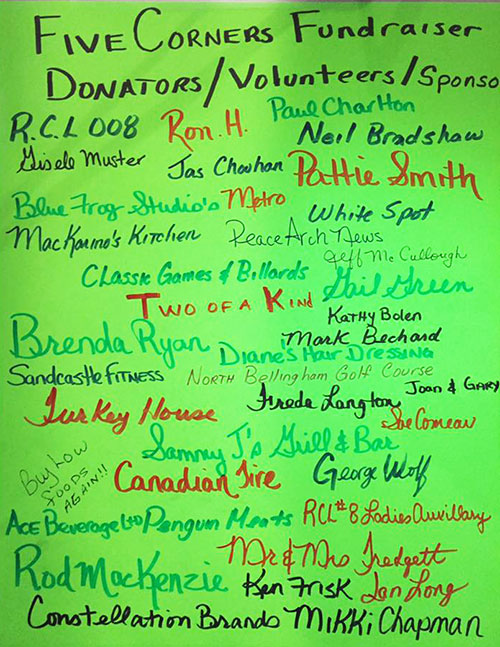 FIVE CORNERS FUNDRAISER
DONATORS/VOLUNTEERS/SPONSO
Paul Charlton
R.C.L 008 Ron. H. Neil Bradshaw
Gisele Muster Jas Chouhan Pattie Smith
Blue Frog Studio's Metro White Spot
Mac Karino's Kitchen Peace Arch News
Jeff Mc Cullough
Classic Games & Billards Gail Green
TWO OF A KIND Kathy Bolen
Brenda Ryan Mark Bechard
Diane's Hair Dressing
Sandcastle Fitness North Bellingham Golf Course Joan & Gary
Turkey House Freda Langton Sue Comeau
Sammy J's Grill & Bar
Buy Low Foods AGAIN!! Canadian Tire George Wolf
Ace Beverage Ltd Penguin Meats RCL #8 Ladies Auxillary
Mr & Mrs Fredgett
Rod MacKenzie Ken Frisk Ian Long
Constellation Brands Mikki Chapman